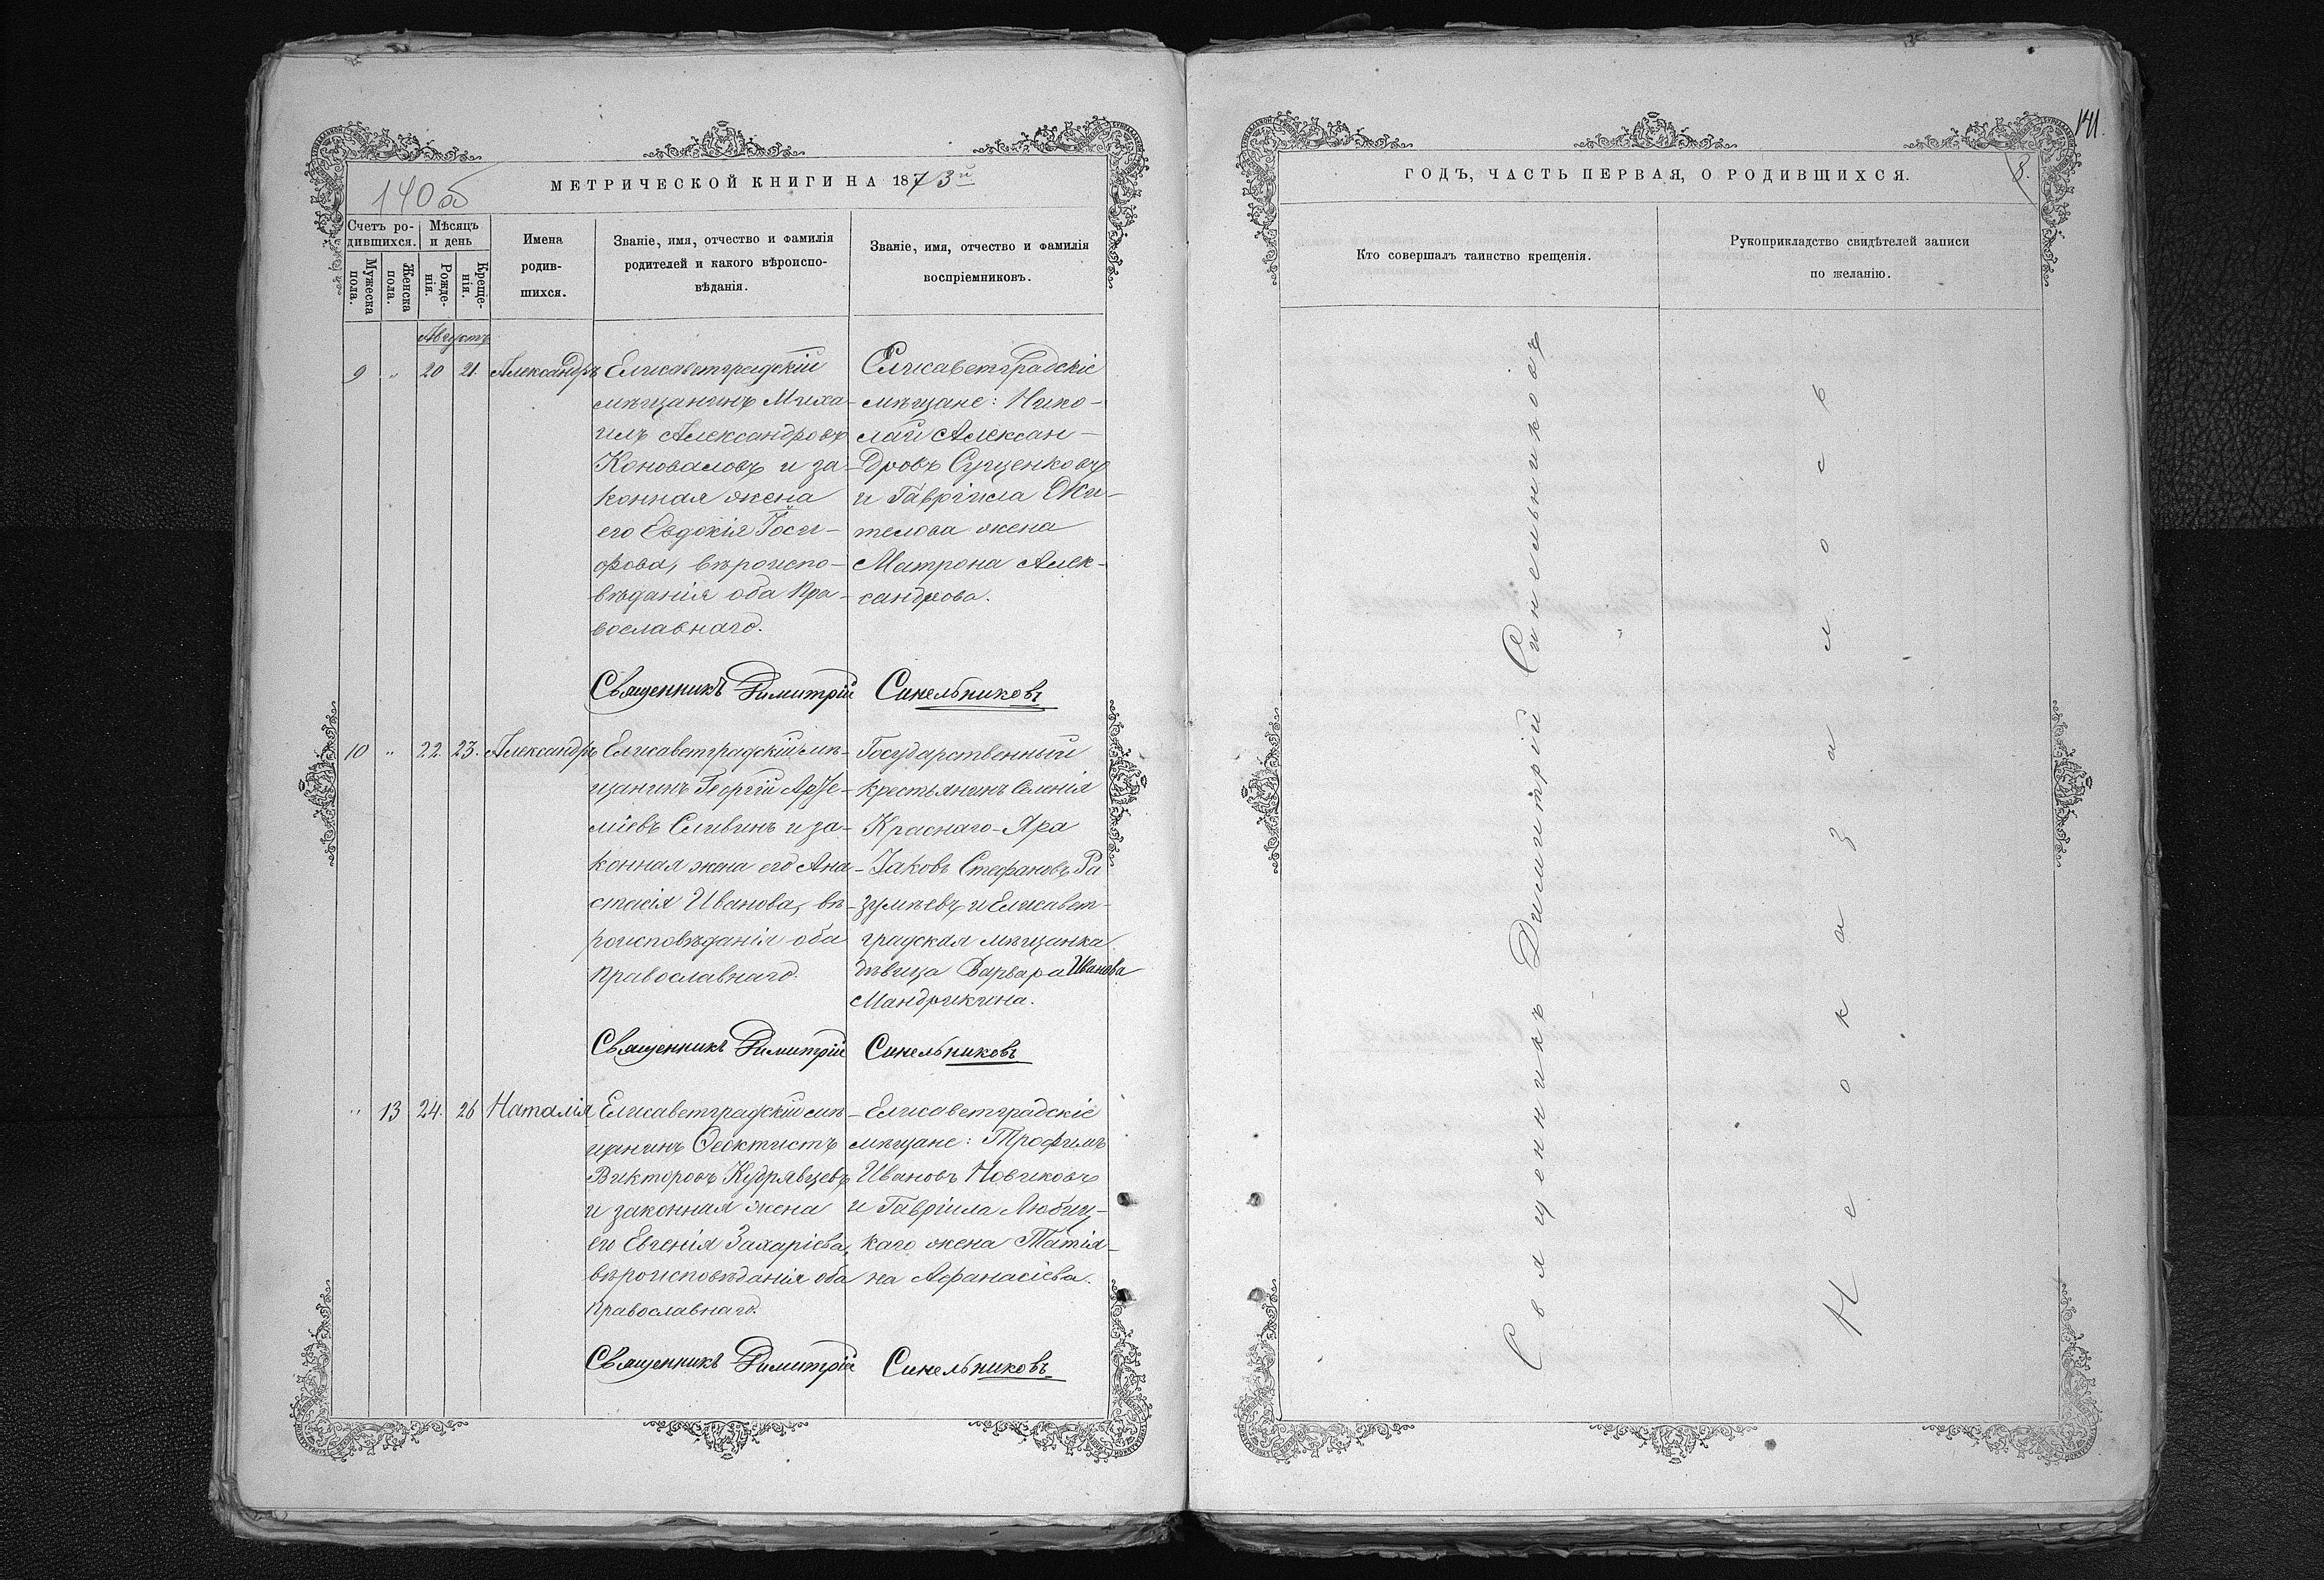 140 об
МЕТРИЧЕСКОЙ КНИГИ НА 1873й
Счетъ ро-
дившихся.
Мѣсяцъ
и день
Мужеска
пола.
Женска
пола.
Рожде-
нія.
Креще-
нія.
Имена
родив-
шихся.
Званіе, имя, отчество и фамилія
родителей и какого вѣроиспо-
вѣданія.
Званіе, имя, отчество и фамилія
воспріемниковъ.
Августъ
9 " 20 21. Александръ
Елисаветградскій
мѣщанинъ Миха-
илъ Александровъ
Коноваловъ и за-
конная жена
его Евдокія Іоси-
фова, вѣроиспо-
вѣданія оба Пра-
вославнаго.
Елисаветградскіе
мѣщане: Нико-
лай Алексан-
дровъ Сущенковъ
и Гавріила Жи-
телова жена
Матрона Алек-
сандрова.
Священникъ Димитрій Синельниковъ
10 " 22. 23. Александръ
Елисаветградскій мѣ-
щанинъ Георгій
міевъ Сливинъ и за-
конная жена его Ана-
стасія Иванова, вѣ-
роисповѣданія оба
Православнаго.
Государственный
крестьянинъ Селенія
Краснаго-Яра
Іаковъ Стефановъ Ра
зумѣевъ и Елисавет-
градская мѣщанка
дѣвица Варвара Иванова
Мандрикина.
Священникъ Димитрій Синельниковъ
" 13 24. 26 Наталія
Елисаветградскій мѣ-
щанинъ Ѳеоктистъ
Викторовъ Кудрявцевъ
и законная жена
его Евгенія Захаріева,
вѣроисповѣданія оба
Православнаго.
Елисаветградскіе
мѣщане: Трофимъ
Ивановъ Новиковъ
и Гавріила Любиц-
каго жена Татія-
на Афанасіева.
Священникъ Димитрій Синельниковъ
141.
8.
ГОДЪ, ЧАСТЬ ПЕРВАЯ, О РОДИВШИХСЯ.
Кто совершалъ таинство крещенія.
Рукоприкладство свидѣтелей записи
по желанію.
Священникъ Димитрій Синельниковъ
Не оказалось